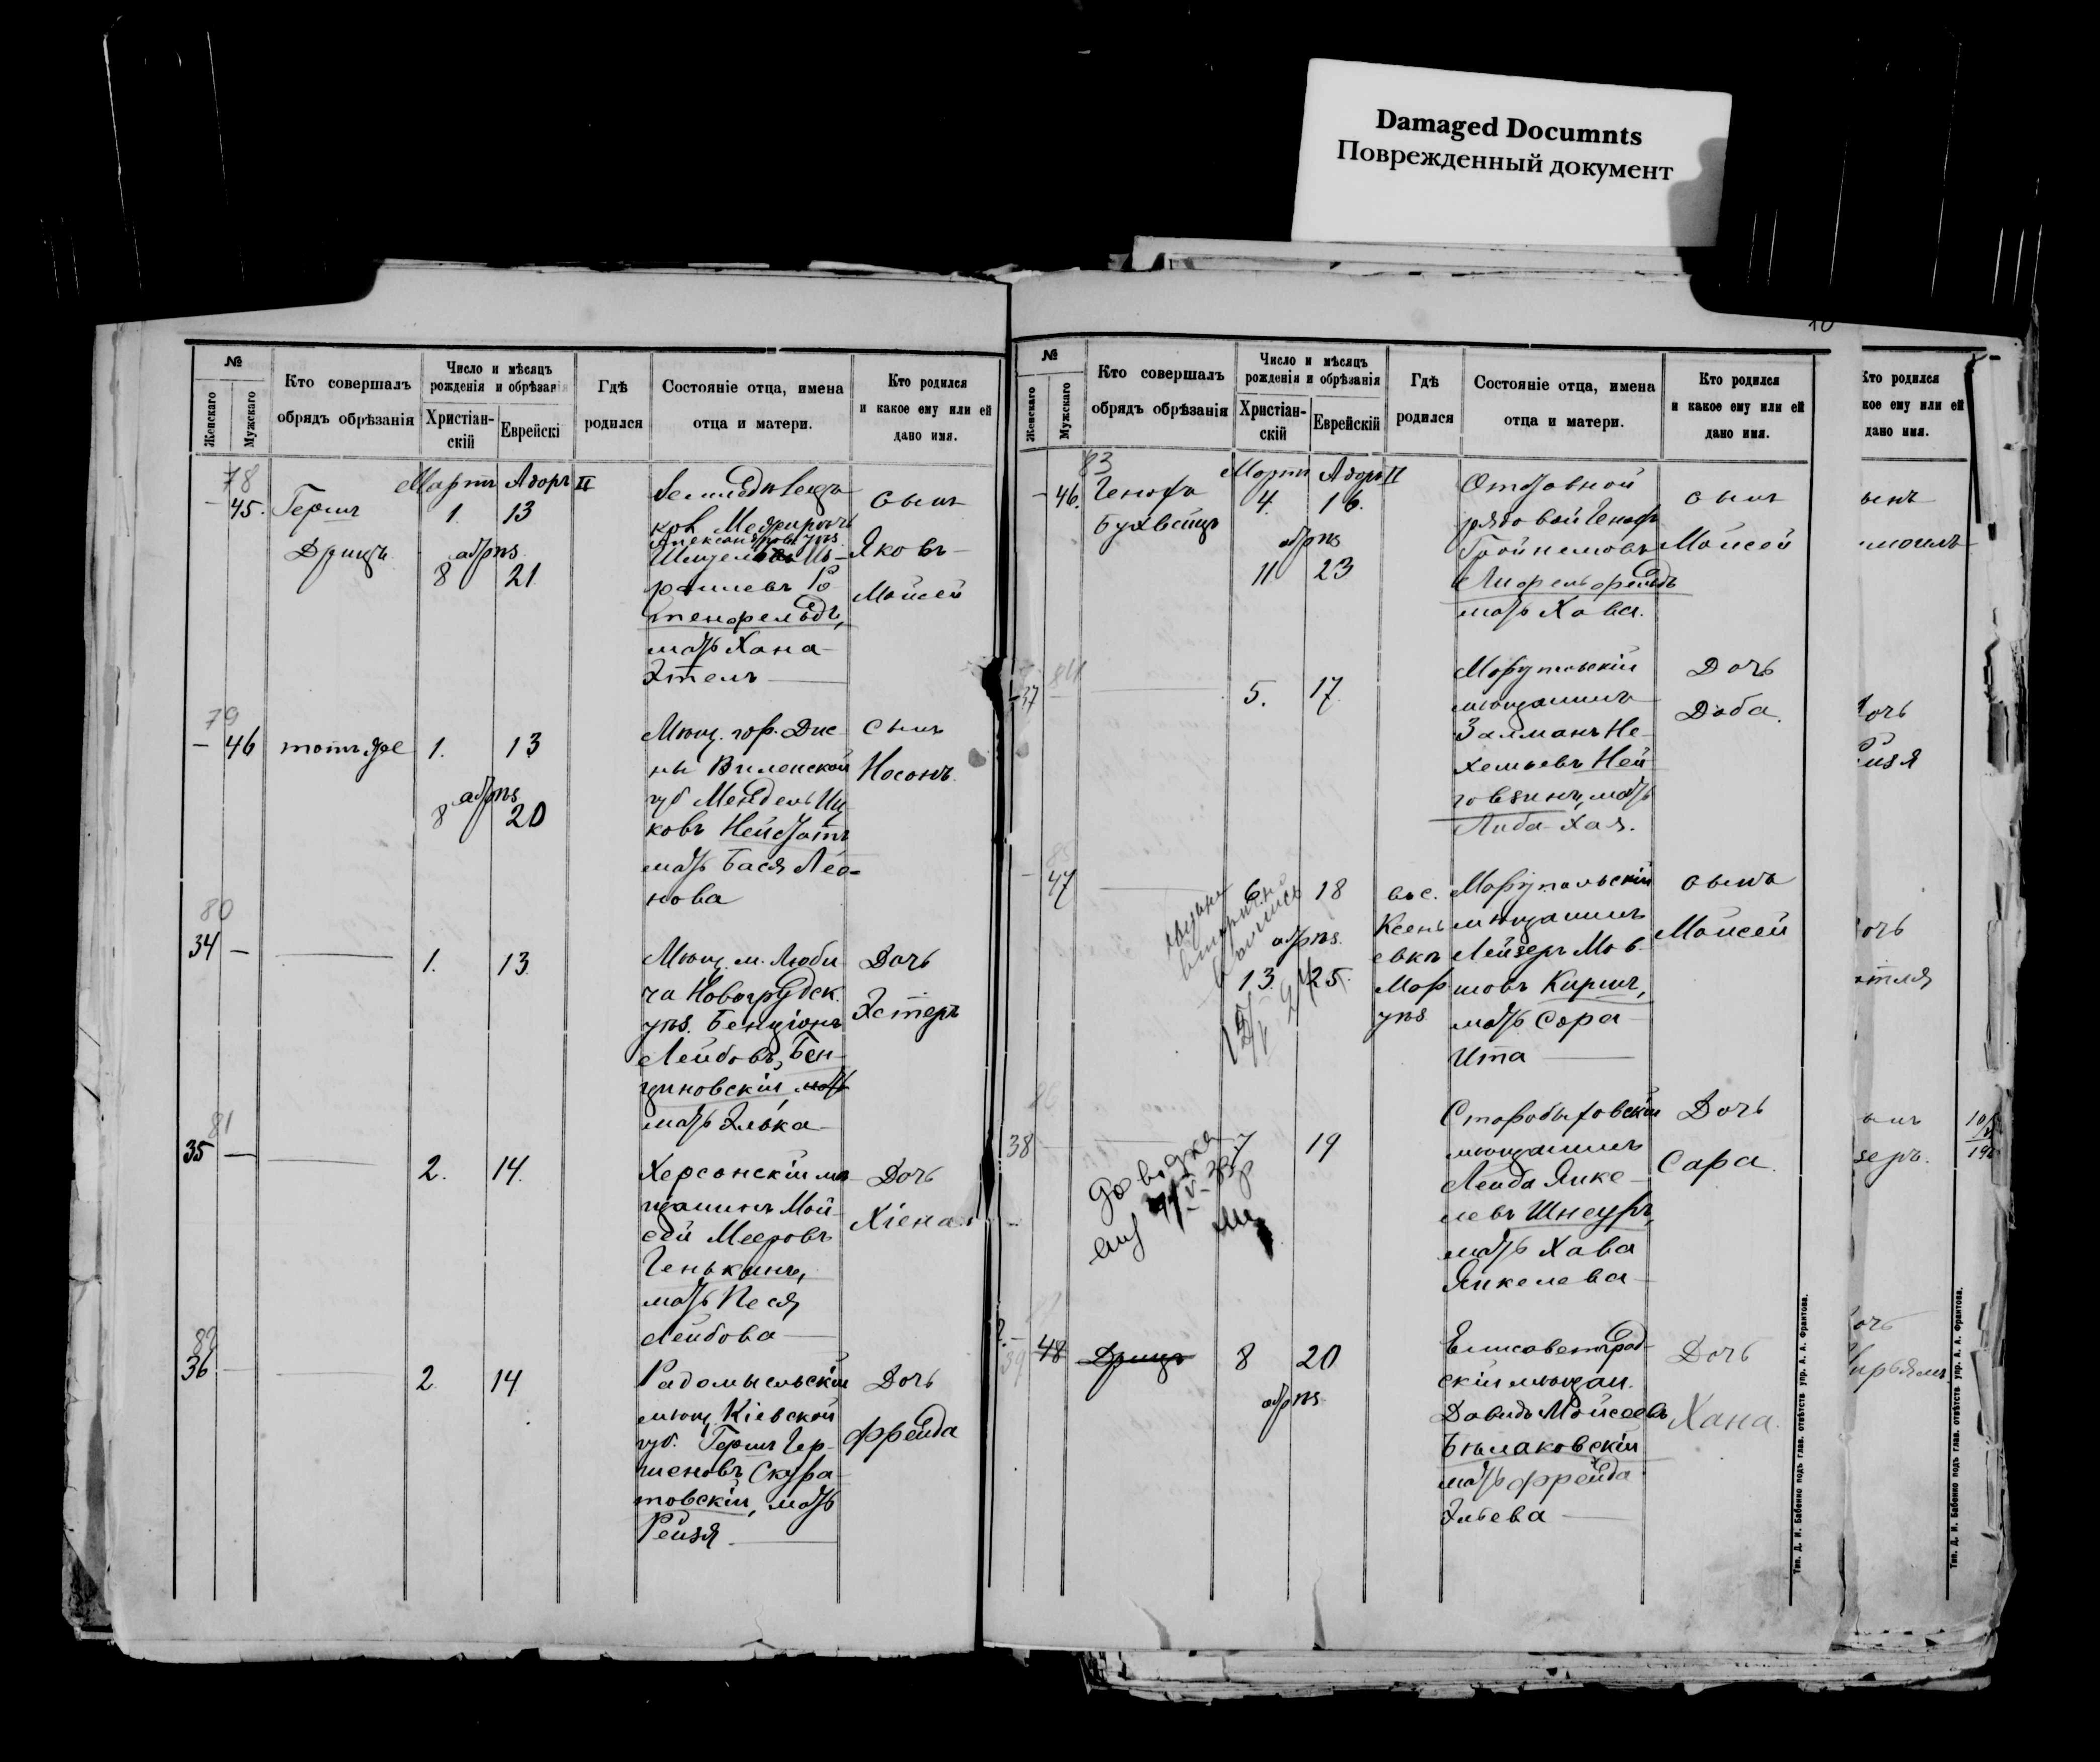 Damaged Documnts
Поврежденный документ
№
Женскаго
Мужскаго
Кто совершалъ
обрядъ обрѣзанія
Число и мѣсяцъ
рожденія и обрѣзанія
Христіан-
скій
Еврейскі
Гдѣ
родился
Состояніе отца, имена
отца и матери.
Кто родился
и какое ему или ей
дано имя.
78
Мартъ Адоръ II
— 45. Гершъ 1. 13
Дрицъ
обрѣз
8 21
Александров. уѣз.
раилевъ
тенфельдъ,
мать Хана
Этель
сынъ
Яковъ
Мойсей
79
— 46 тотъ же 1. 13
обрѣз
8 20
Мѣщ. гор. Дис
ны Виленской
губ Мендель Иц
ковъ
мать Бася Лео=
нова
сынъ
Носонъ.
80
34 — 1. 13.
Мѣщ. м. Люби
ча Новогрудск.
уѣз. Бенціонъ
Лейбовъ, Бен-
ціновскій, мать
мать Элька
Дочь
Эстеръ
81
35 — 2. 14.
Херсонскій мѣ
щанинъ Мой
сей Мееровъ
Генькинъ,
мать Песя
Лейбова
Дочь
Хіена
82
36 — 2 14
Радомысльскій
мѣщ. Кіевской
губ. Гершъ Гер-
шеновъ Скура
товскій, мать
Рейзя
Дочь
Фрейда
10
№
Женскаго
Мужскаго
Кто совершалъ
обрядъ обрѣзанія
Число и мѣсяцъ
рожденія и обрѣзанія
Христіан-
скій
Еврейскій
Гдѣ
родился
Состояніе отца, имена
отца и матери.
Кто родился
и какое ему или ей
дано имя.
83
Мартъ Адоръ II
— 46. Генохъ 4. 16.
Бухбиндъ
обрѣз
11 23
Отставной
рядовой Генохъ
мать Хався.
сынъ
Мойсей
84
37 — 5. 17.
Маріупольскій
мѣщанинъ
Залманъ Не-
хемьевъ Ней
мать
Либа-Хая.
Дочь
Доба.
85
— 47 6. 18
обрѣз.
13. 25.
въ с.
Ксень
евкѣ
Мар
уѣз
Маріупольскій
мѣщанинъ
Лейзеръ Мов-
шовъ Киршъ,
мать Сора
Ита
сынъ
Мойсей
86
38 — 7 19
довідка
Старобыховскій
мѣщанинъ
Лейба Янке-
левъ Шнеуръ,
мать Хава
Янкелева
Дочь
Сара.
87
39 48 Дрицъ 8 20
обрѣз
Елисаветград-
скій мѣщан.
Давидъ Мойсеевъ
Бѣлаковскій
мать Фрейда
Эльева
Дочь
Хана.
Тип. Д. И. Бабенко подъ глав. отвѣтств упр. А. А. Франтова.
Кто родился
кое ему или ей
дано имя.
ынъ
очь
изя
очь
зеръ.
очь
ирьямъ
Тип. Д. И. Бабенко подъ глав. отвѣтств упр. А. А. Франтова.